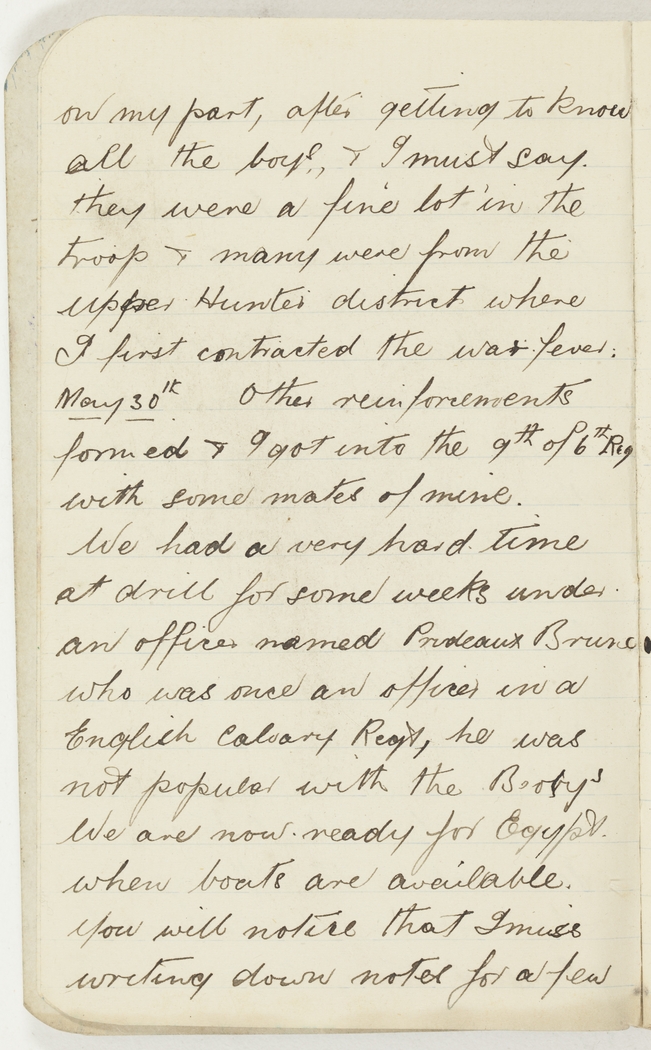 on my part, after getting to know
all the boys, & I must say
they were a fine lot in the
troop & many were from the
upper Hunter district where
I first contracted the war fever.
May 30th Other reinforcements
formed & I got into the 9th of 6th Reg
with some mates of mine.
We had a very hard time
at drill for some weeks under
an officer named Prideaux Brune
who was once an officer in a
English Calvary Regt, he was
not popular with the Boys
We are now ready for Egypt.
when boats are available.
You will notice that I miss
writing down notes for a few